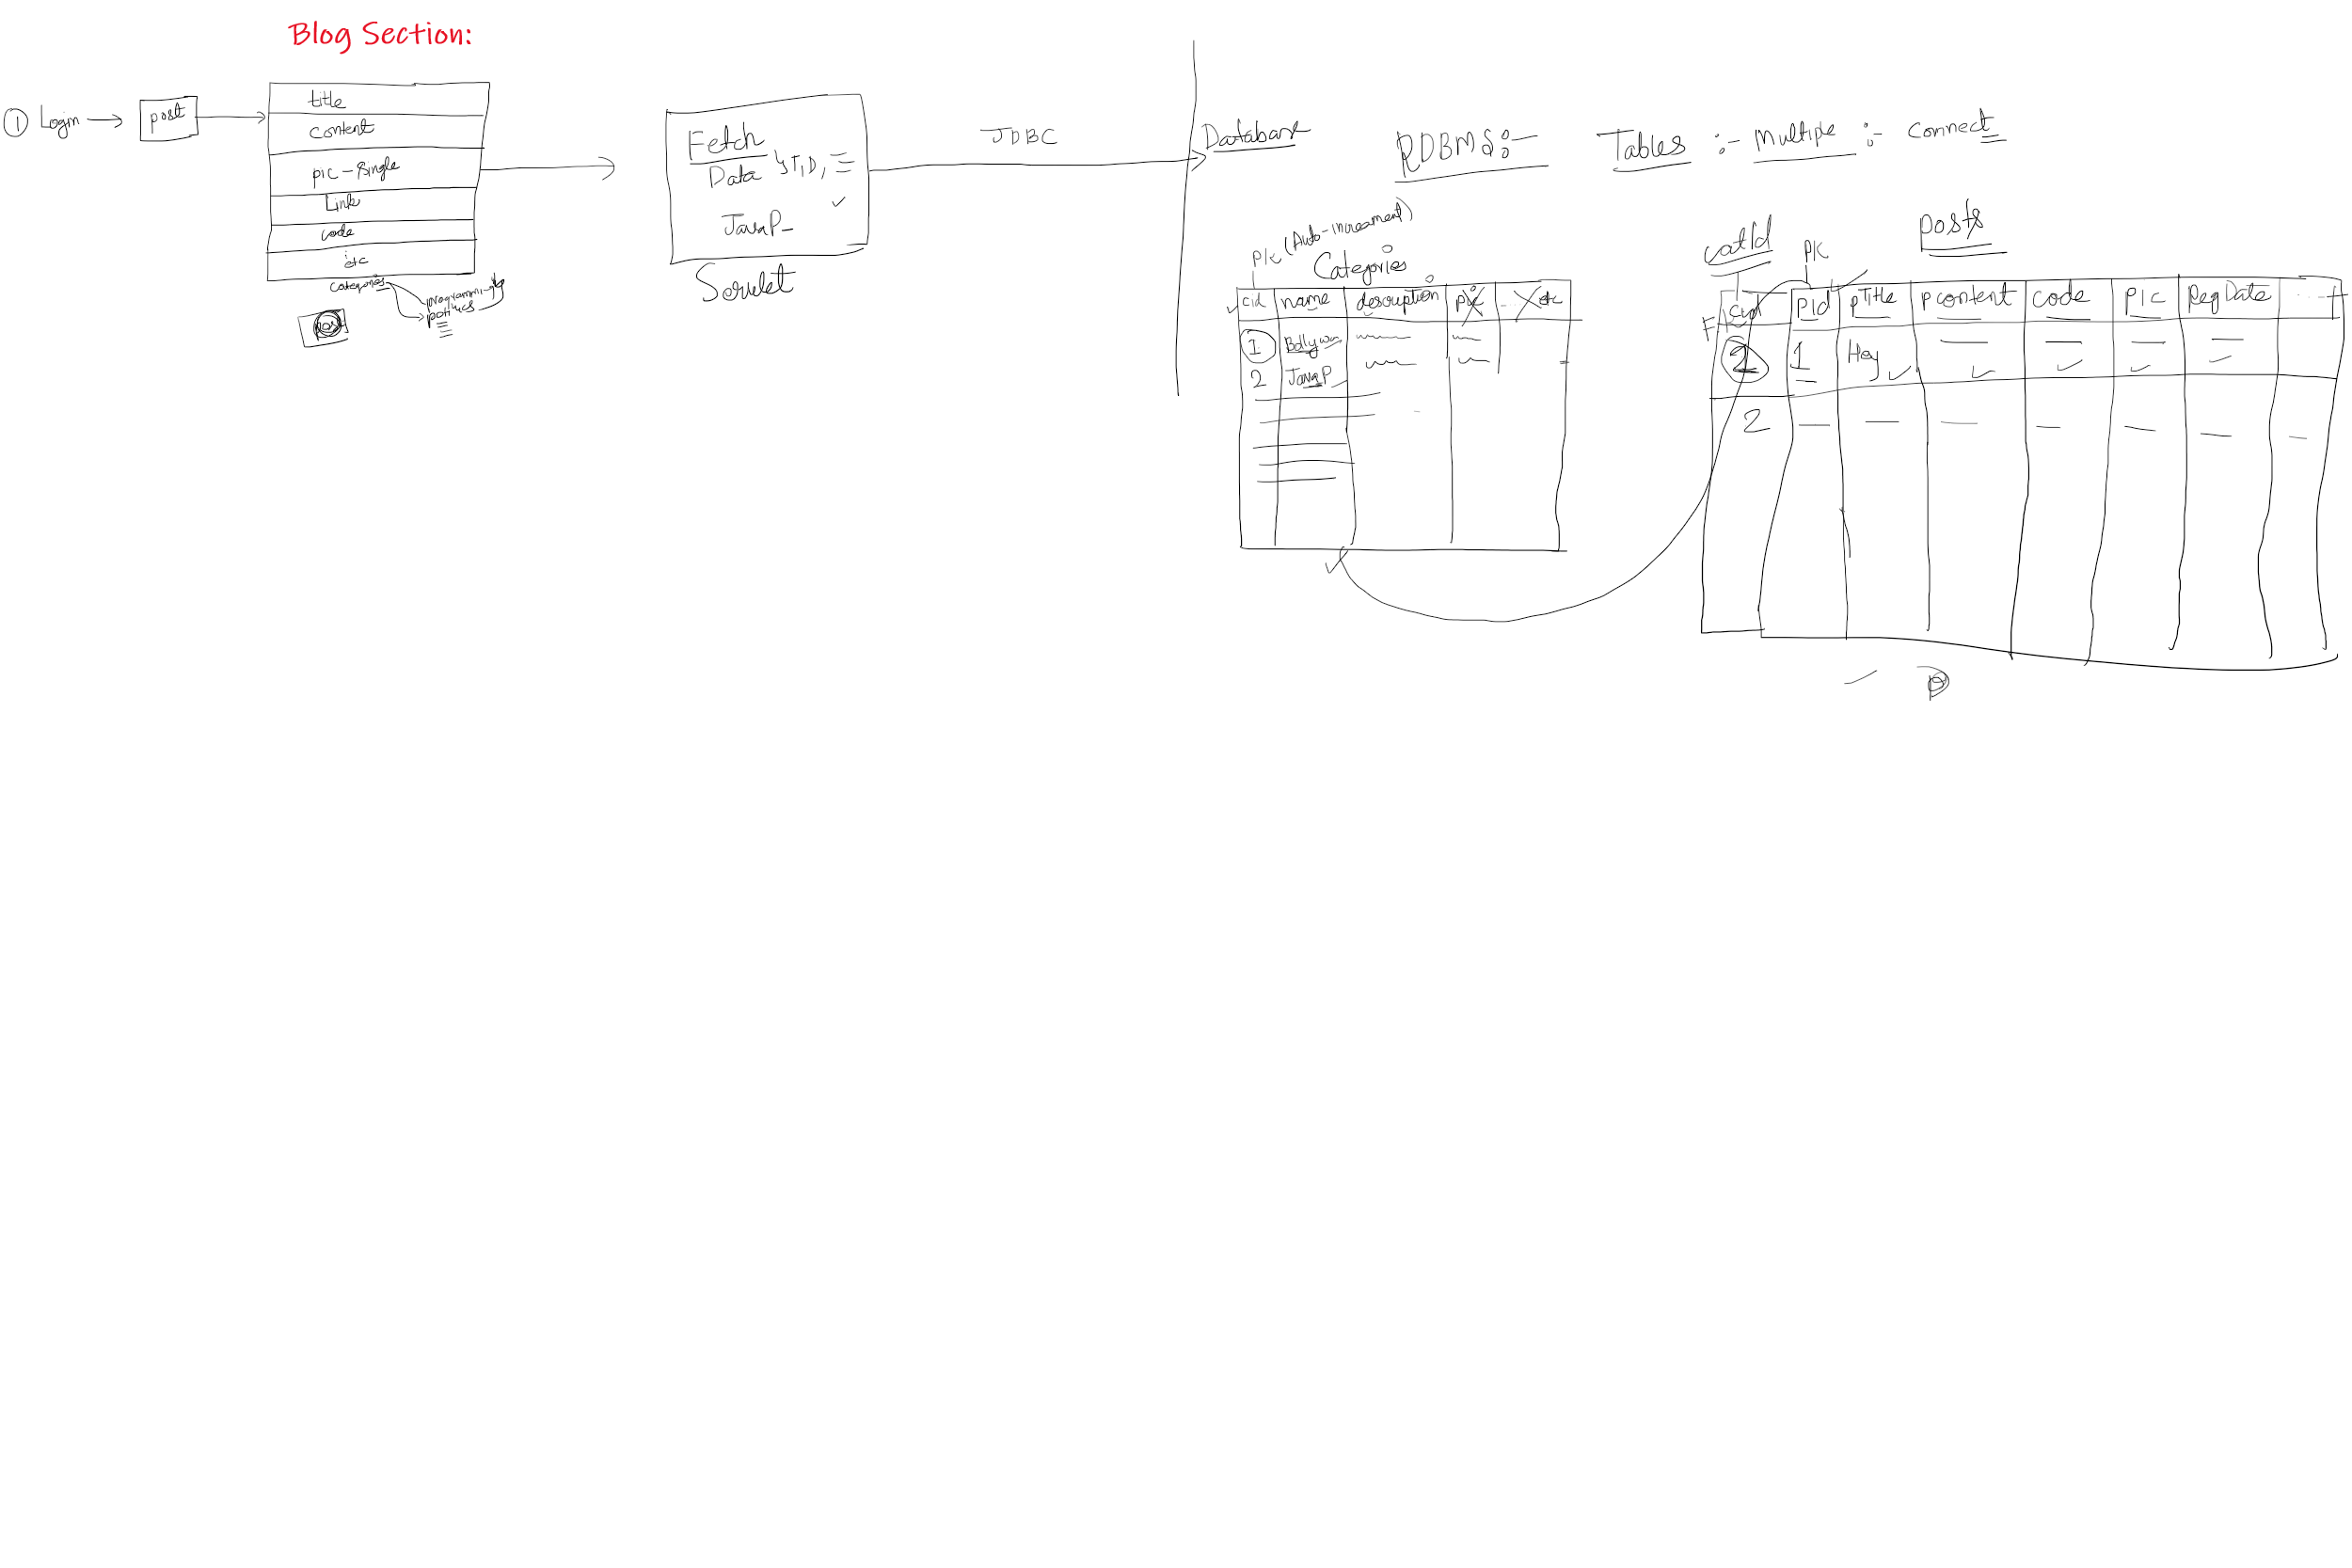 Blog Section:
① Login → post
title
content
pic - single
Link
code
etc
categories
programming
post
Fetch
Data T,D,
JavaP_
Servlet
JDBC
Database
RDBMS:-
Tables :- Multiple :- Connect
PK (Auto-increament)
Categories
cid name description pic etc
1 Bollywo
2 JavaP
catId
PK
posts
FK
cid pId pTitle pcontent code pic RegDate
2 1 Hey
2